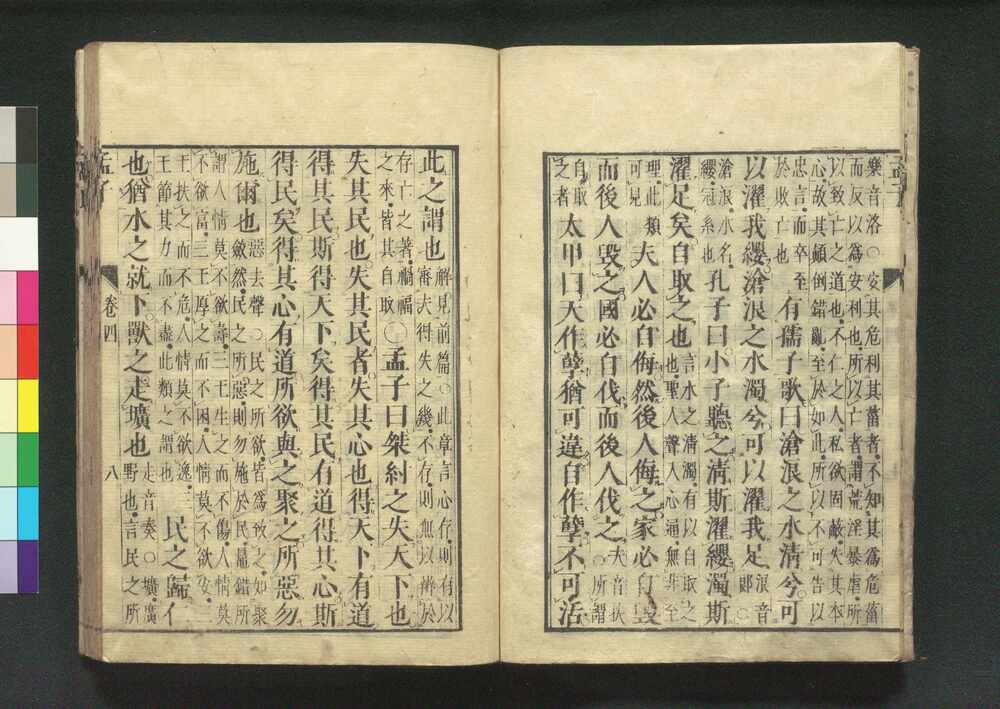 孟子
樂音洛○安其危利其菑者不知其爲危菑
而反以爲安利也所以亡者謂荒淫暴虐所
以致亡之道也不仁之人私欲固蔽失其本
心故其顛倒錯亂至於如此所以不可告以
忠言而卒至
於敗亡也
有孺子歌曰滄浪之水清兮可
以濯我纓滄浪之水濁兮可以濯我足
浪音
郞○
滄浪水名
纓冠系也
孔子曰小子聽之清斯濯纓濁斯
濯足矣自取之也
言水之清濁有以自取之
也聖人聲入心通無非至
理此類
可見
夫人必自侮然後人侮之家必自毀
而後人毀之國必自伐而後人伐之
夫音扶
○所謂
自取
之者
太甲曰天作孽猶可違自作孽不可活
此之謂也
解見前篇○此章言心存則有以
審夫得失之幾不存則無以辨於
存亡之著禍福
之來皆其自取
○孟子曰桀紂之失天下也
失其民也失其民者失其心也得天下有道
得其民斯得天下矣得其民有道得其心斯
得民矣得其心有道所欲與之聚之所惡勿
施爾也
惡去聲○民之所欲皆爲致之如聚
斂然民之所惡則勿施於民鼂錯所
謂人情莫不欲壽三王生之而不傷人情莫
不欲富三王厚之而不困人情莫不欲安三
王扶之而不危人情莫不欲逸三
王節其力而不盡此類之謂也
民之歸仁
也猶水之就下獸之走壙也
走音奏○壙廣
野也言民之所
孟子
卷四
八